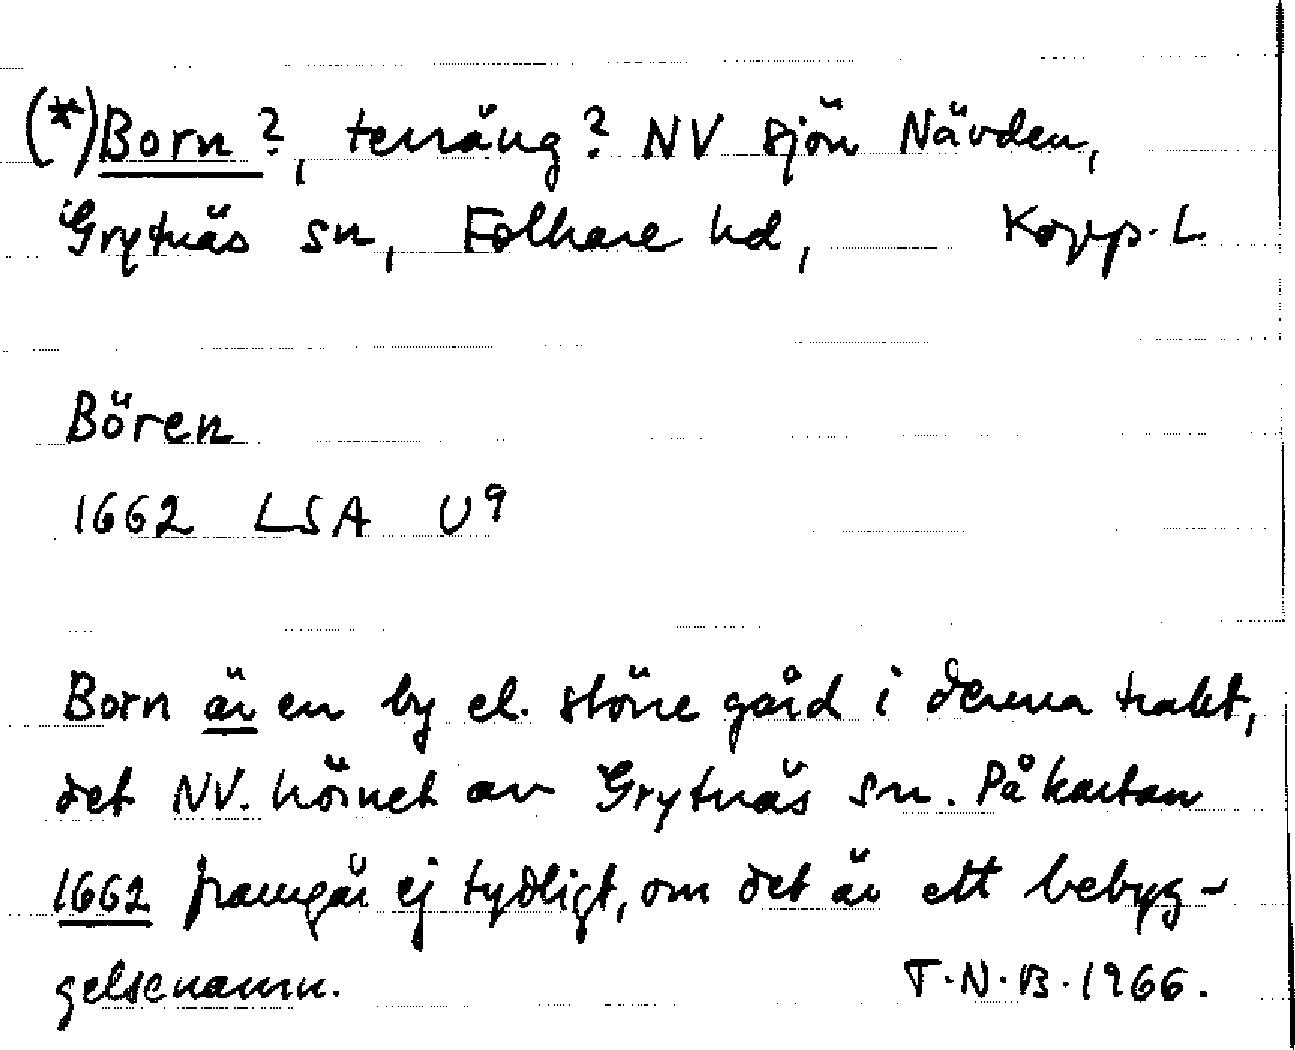 (*)Born?, terräng? NV sjön Nävden,
Grytnäs sn, Folkare hd, Kopp. L
Bören
1662 LSA U9
Born är en by el. större gård i denna trakt,
det NV. hörnet av Grytnäs sn. På kartan
1662 framgår ej tydligt, om det är ett bebyg-
gelsenamn. T.N.B. 1966.